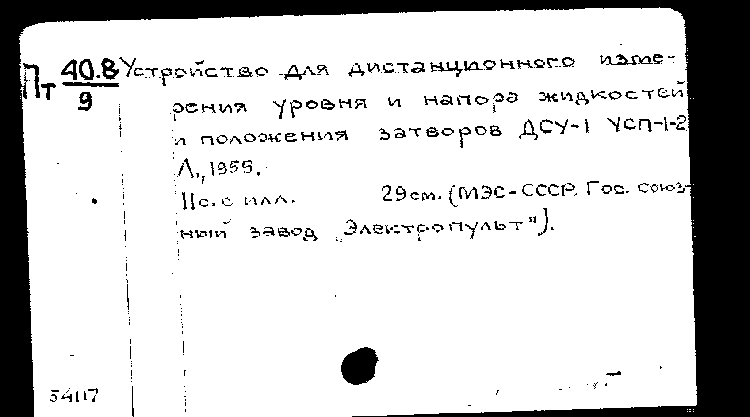 Пт 40.8/9 Устройство для дистанционного изме-
рения уровня и напора жидкостей
и положения затворов ДСУ-1 УСП-1-2
Л., 1955.
11с. с илл. 29см. (МЭС-СССР. Гос. союз-
ный завод „Электропульт").
54117